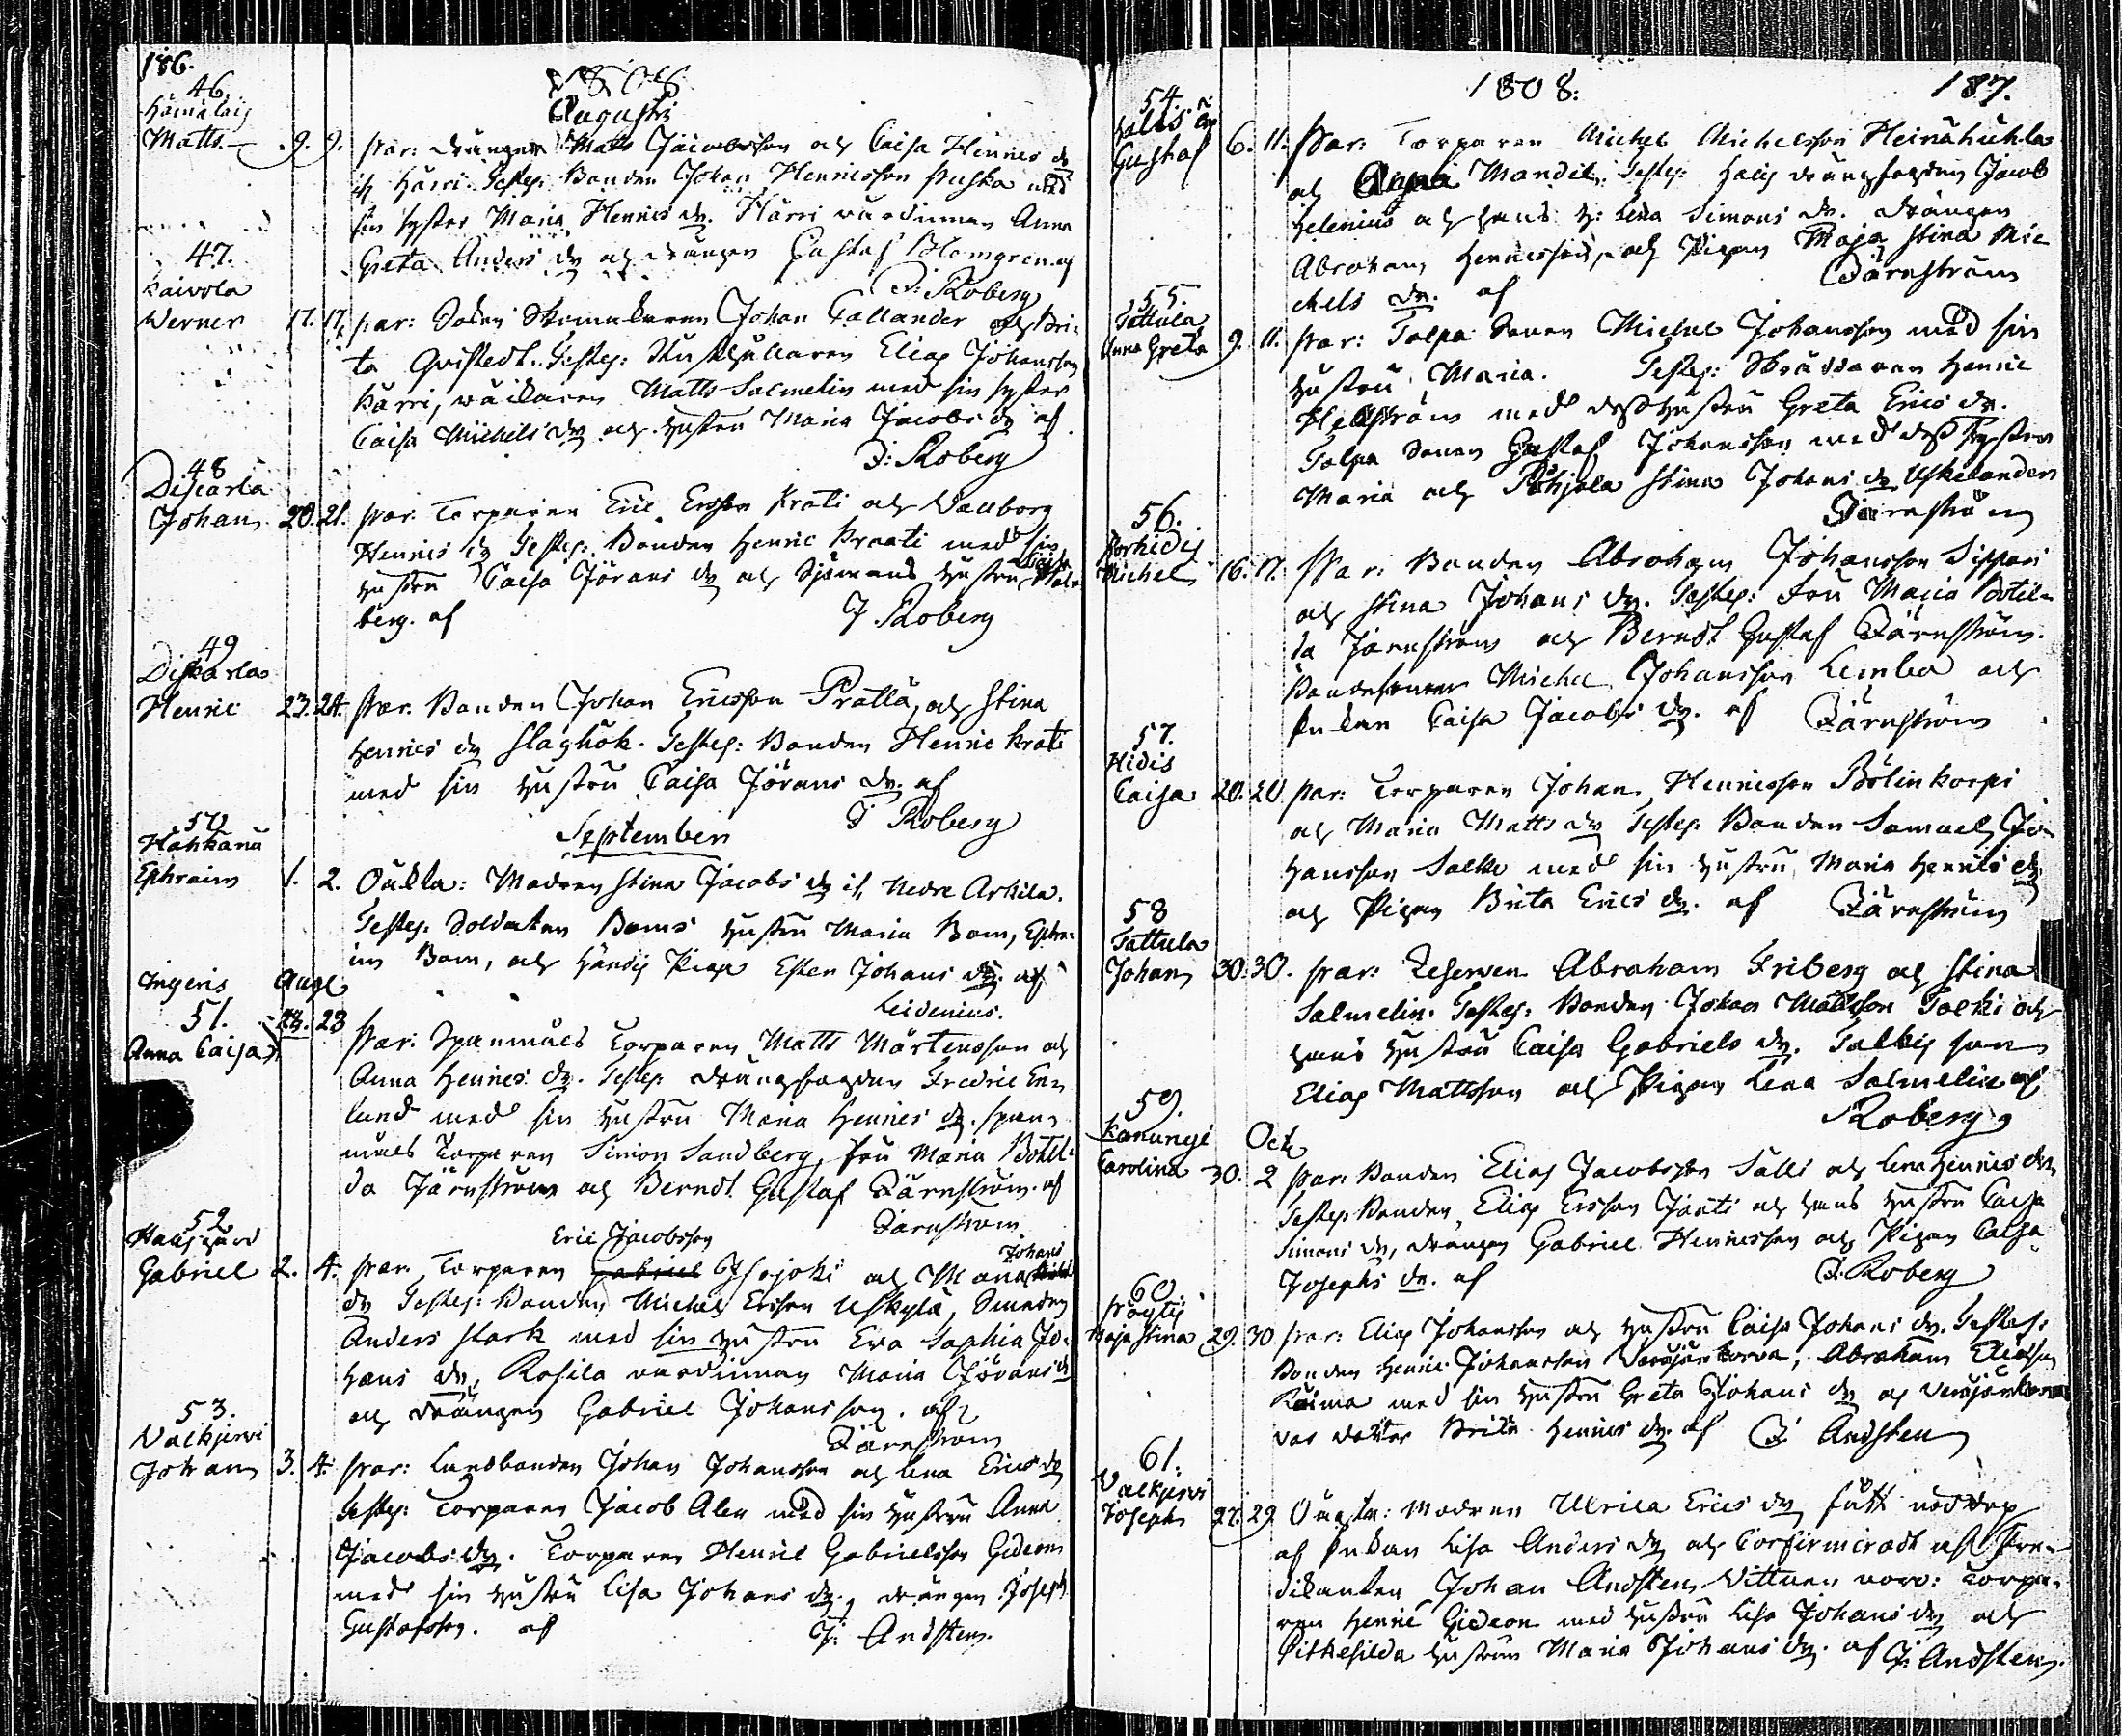 186.
1808
Augusti
46.
Hämälois
Matts. 9. 9. Par: Drängen Matts Jacobsson och Caisa Henrics dr
Härri. Testes: Bonden Johan Henricsson Puska med
sin syster Maria Henrics dr. Härri värdinnan Anna
Greta Anders dr och drängen Gustaf Blomgren af
J: Roberg
47.
Kaivola
Werner 17. 17. par: Skomakaren Johan Tallander och Bri-
ta Qvistedt. Testes: Elias Johansson
Härri, Matts Salmelin med sin syster
Caisa Michels dr och hustru Maria Jacobs dr af
J: Roberg
48
Johan 20. 21. par. Torparen Eric Ersson Krati och Wallborg
Henrics dr Testes: Bonden Henric Kraati med sin
hustru Caisa Jörans dr och Sjömans hustru Caisa Malm
berg. af J Roberg
49
Henric 23. 24. par. Bonden Johan Ericsson Prättä, och Stina
Henrics dr Slaghök. Testes: Bonden Henric Krati
med sin hustru Caisa Jörans dr. af
J Roberg
September
50
Hahkana
Ephraim 1. 2. Oäkta: Modren Stina Jacobs dr Nedre Arkila.
Testes. Soldaten Boms hustru Maria Bom, Ephra-
im Bom, och Piga Ester Johans dr. af
Leidenius.
Ingeris Aug.
51. 23. 23
Anna Caisa par: Spanmäes Torparen Matts Mårtensson och
Anna Henrics dr. Testes drängfogden Fredric En-
lund med sin hustru Maria Henrics dr. span-
mäes Torparen Simon Sandberg, fru Maria Botil-
da Järnström och Berndt Gustaf Järnström. af
Järnström
52
Gabriel 2. 4. par. Torparen Eric Jacobsson Isojoki och Maria Johans
dr Testes: Bonden Michel Ersson Uskylä, Smeden
Anders Stark med sin hustru Eva Sophia Jo-
hans dr, Rosila värdinnan Maria Jörans dr
och drängen Gabriel Johansson. af
Järnström
53.
Valkjervi
Johan 3. 4. par: Landbonden Johan Johansson och Lena Erics dr
Testes: Torparen Jacob Alen med sin hustru Anna
Jacobs dr. Torparen Henric Gabrielsson Gideon
med sin hustru Lisa Johans dr, drängen Joseph
Gustafsson. af J: Andsten.
1808. 187.
54.
Gustaf 6. 11. Par: Torparen Michel Michelsson Heinähuhta
och Anna Mandel. Testes: Halis drängfogden Jacob
Helenius och hans h: Lena Simons dr. drängen
Abraham Henricsson, och Pigan Maja Stina Mic
chels dr. af Järnström
55.
Tattula
Anna Greta 9. 11. Par: Talpa sonen Michel Johansson med sin
hustru Maria. Testes: Skräddaren Henric
Hellström med dess hustru Greta Erics dr.
Talpa sonen Gustaf Johansson med dess syster
Maria och Pohjola Stina Johans dr Uskelander
Järnström
56.
Korhidis
Michel 16. 17. Par: Bonden Abraham Johansson Sippari
och Stina Johans dr. Testes: fru Maria Botil-
da Järnström och Berndt Gustaf Järnström.
Bondesonen Michel Johansson Lemba och
enkan Caisa Jacobs dr. af Järnström
57.
Hidis
Caisa 20. 20 par: Torparen Johan Henricsson Bölinkorpi
och Maria Matts dr Testes. Bonden Samuel Jo-
hansson Salke med sin hustru Maria Henrics dr
och Pigan Brita Erics dr. af Järnström
58
Tattula
Johan 30. 30. par: Reserven Abraham Friberg och Stina
Salmelin. Testes: Bonden Johan Mattsson Talki och
hans hustru Caisa Gabriels dr. Talkis son
Elias Mattsson och Pigan Lena Salmelin af
Roberg
Oct.
59.
Kanungi
Carolina 30. 2 par. Bonden Elias Jacobsson Sälli och Lena Henrics dr
Testes Bonden Elias Ersson Jaati och hans hustru Caisa
Simons dr, drängen Gabriel Henricsson och Pigan Caisa
Josephs dr. af J. Roberg
60.
Pöytis
Maja Stina 29. 30 par: Elias Johansson och hustru Caisa Johans dr. Testes:
Bonden Henric Johansson Varsjönkorva, Abraham Eliasson
Raima med sin hustru Greta Johans dr och Varsjönkorva
dotter Brita Henrics dr. af J Andsten
61.
Valkjervi
Joseph 27. 29 Oäkta: Modren Ulrica Erics dr fått nöddop
af enkan Lisa Anders dr och Confirmeradt af Pre-
dikanten Johan Andsten. Vittnen voro: Torpa-
ren Henric Gideon med hustru Lisa Johans dr och
Pitkesilda hustrun Maria Johans dr. af J: Andsten.